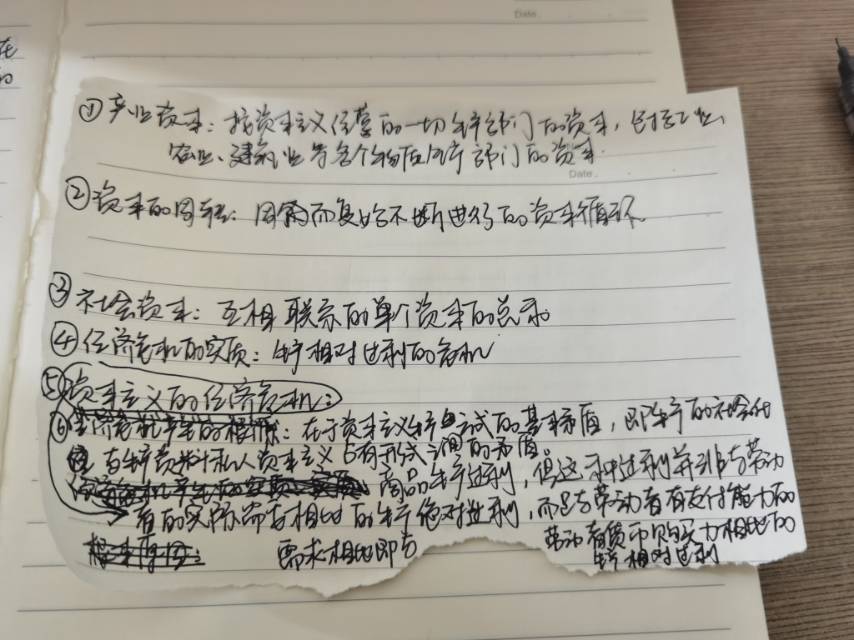 在
的
Date
①产业资本：指资本主义经营的一切生产部门的资本，包括工业、
农业、建筑业等各个物质生产部门的资本.
Date.
②资本的周转：周而复始不断进行的资本循环.
③社会资本：互相联系的单个资本的总和
④经济危机的实质：生产相对过剩的危机
⑤资本主义的经济危机：
⑥在于资本主义生产方式的基本矛盾，即生产的社会化
与生产资料私人资本主义占有形式之间的矛盾。
商品生产过剩，但这种过剩并非与劳动
者的实际需求相比的生产绝对过剩，而是与劳动者有支付能力的
需求相比即与
劳动者货币购买力相比的
生产相对过剩